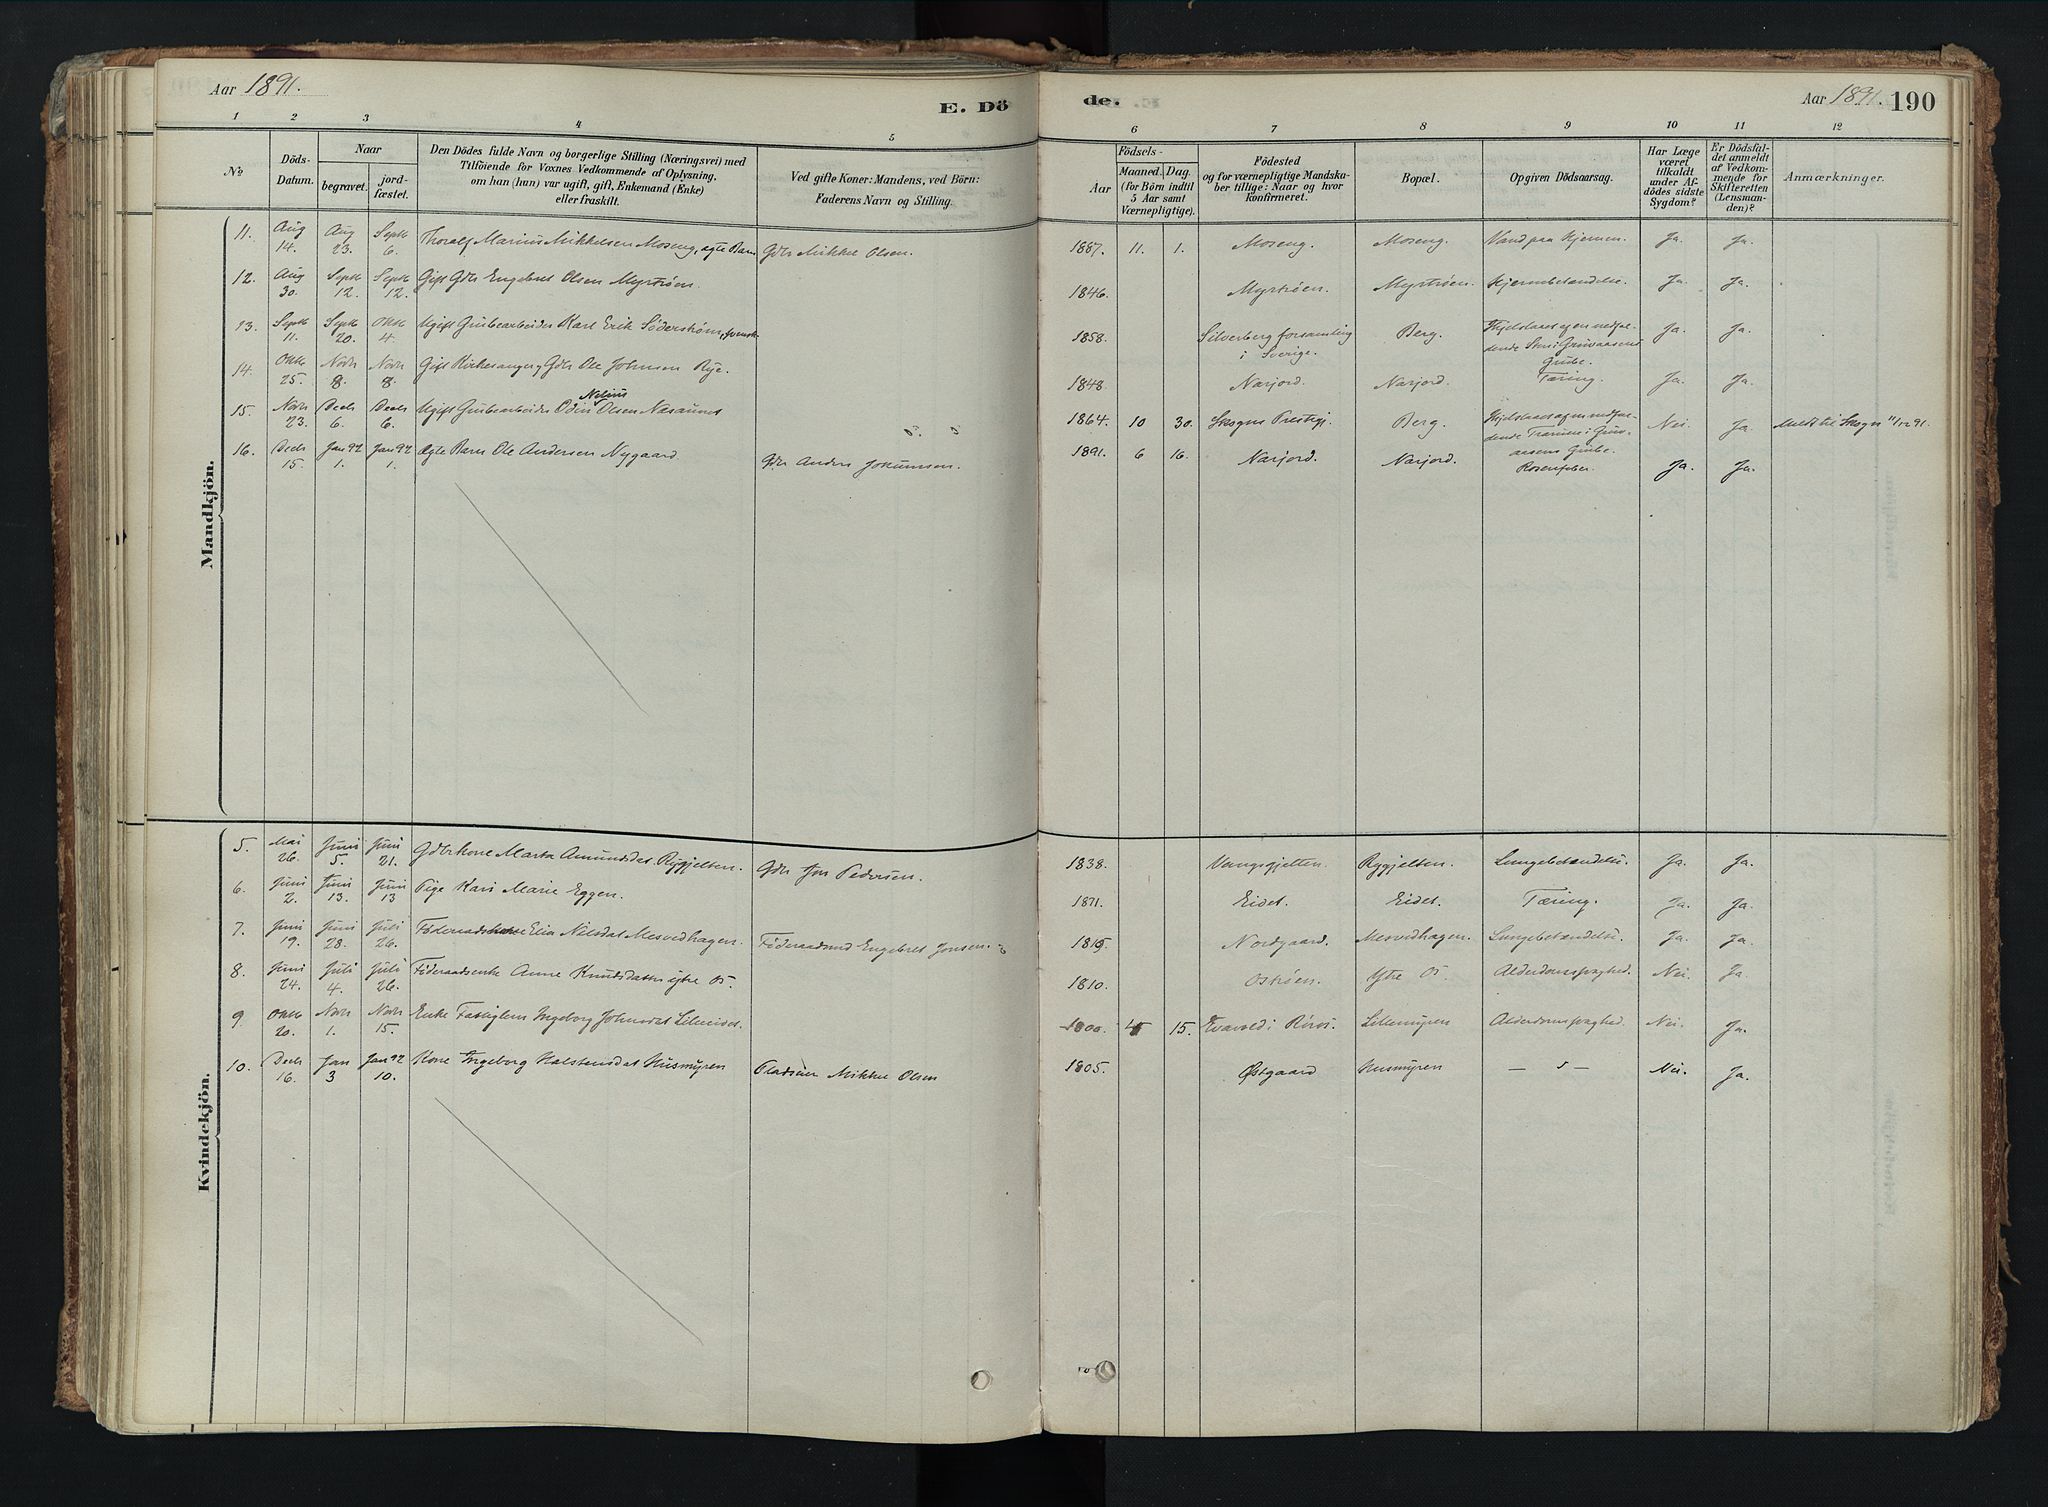 Aar 1891.
E. Dö
de.
Aar 1891.
190
1 2 3 4 5 6 7 8 9 10 11 12
No
Döds-
Datum.
Naar
begravet.
jord-
fæstet.
Den Dödes fulde Navn og borgerlige Stilling (Næringsvei) med
Tilföiende for Voxnes Vedkommende af Oplysning,
om han (hun) var ugift, gift, Enkemand (Enke)
eller fraskilt.
Ved gifte Koner: Mandens, ved Börn:
Faderens Navn og Stilling.
Födsels-
Aar
Maaned. Dag.
(for Börn indtil
5 Aar samt
Værnepligtige).
Födested
og for værnepligtige Mandska-
ber tillige: Naar og hvor
konfirmeret.
Bopæl.
Opgiven Dödsaarsag.
Har Læge
været
tilkaldt
under Af-
dödes sidste
Sygdom?
Er Dödsfal-
det anmeldt
af Vedkom-
mende for
Skifteretten
(Lensman-
den)?
Anmærkninger.
Mandkjön.
11. Aug 14. Aug 23. Septb 6. Thoralf Marius Mikkelsen Moseng, ægte Barn Gdbr Mikkel Olsen. 1887. 11. 1. Moseng. Moseng. Vand paa Hjernen. Ja. Ja.
12. Aug 30. Septb 12. Septb 12. Gift Gdbr Engebret Olsen Myrtrøen. 1846. Myrtrøen. Myrtrøen. Hjernebetændelse. Ja. Ja.
13. Septb 11. Septb 20. Oktb 4. Ugift Grubearbeider Karl Erik Söderström, svensk 1858. Silverberg forsamling
i Sverige. Berg. Ihjelslaaet af en nedfal-
dende Sten i Gruvaasens
Grube. Ja. Ja.
14. Oktb 25. Novb 8. Novb 8. Gift Kirkesanger, Gdbr Ole Johnsen Rye. 1848. Narjord. Narjord. Tæring. Ja. Ja.
15. Novb 23. Decb 6. Decb 6. Ugift Grubearbeider Odin Nelius Olsen Nesaunet 1864. 10 30. Skogns Prestgj. Berg. Ihjelslaaet af en nedfal-
dende i Gruv-
aasens Grube. Nei. Ja. Meldt til Skogn 11/12 91.
16. Decb 15. Jan 92 1. Jan 92 1. Ægte Barn Ole Andersen Nygaard Gdbr Anders Jokumsen. 1891. 6 16. Narjord. Narjord. Rosenfeber. Ja. Ja.
Kvindekjön.
5. Mai 26. Juni 5. Juni 21. Gdbrkone Marta Amundsdat. Ryggjelten. Gdbr Jon Pedersen. 1838. Vangsgjelten. Ryggjelten. Lungebetændelse. Ja. Ja.
6. Juni 2. Juni 13. Juni 13 Pige Kari Marie Eggen. 1871. Eidet. Eidet. Tæring. Ja. Ja.
7. Juni 19. Juni 28. Juli 26. Föderaadskone Elia Nilsdat Mesvedhagen. Föderaadsmd Engebret Jonsen. 1815. Nordgaard. Mesvedhagen. Lungebetændelse. Ja. Ja.
8. Juni 24. Juli 4. Juli 26. Föderaadsenke Anne Knudsdatter ytre Os. 1810. Ostrøen. Ytre Os. Alderdomssvaghed. Nei. Ja.
9 Oktb 20. Novb 1. Novb 15. Enke Fattiglem Ingeborg Johnsdat Lilleeidet. 1800. 4 15. i Röros. Lillemyren Alderdomssvaghed. Nei. Ja.
10. Decb 16. Jan 3 Jan 92 10. Kone Ingeborg Halstensdat Husmyren Pladseier Mikkel Olsen 1805. Østgaard Husmyren — s — Nei. Ja.